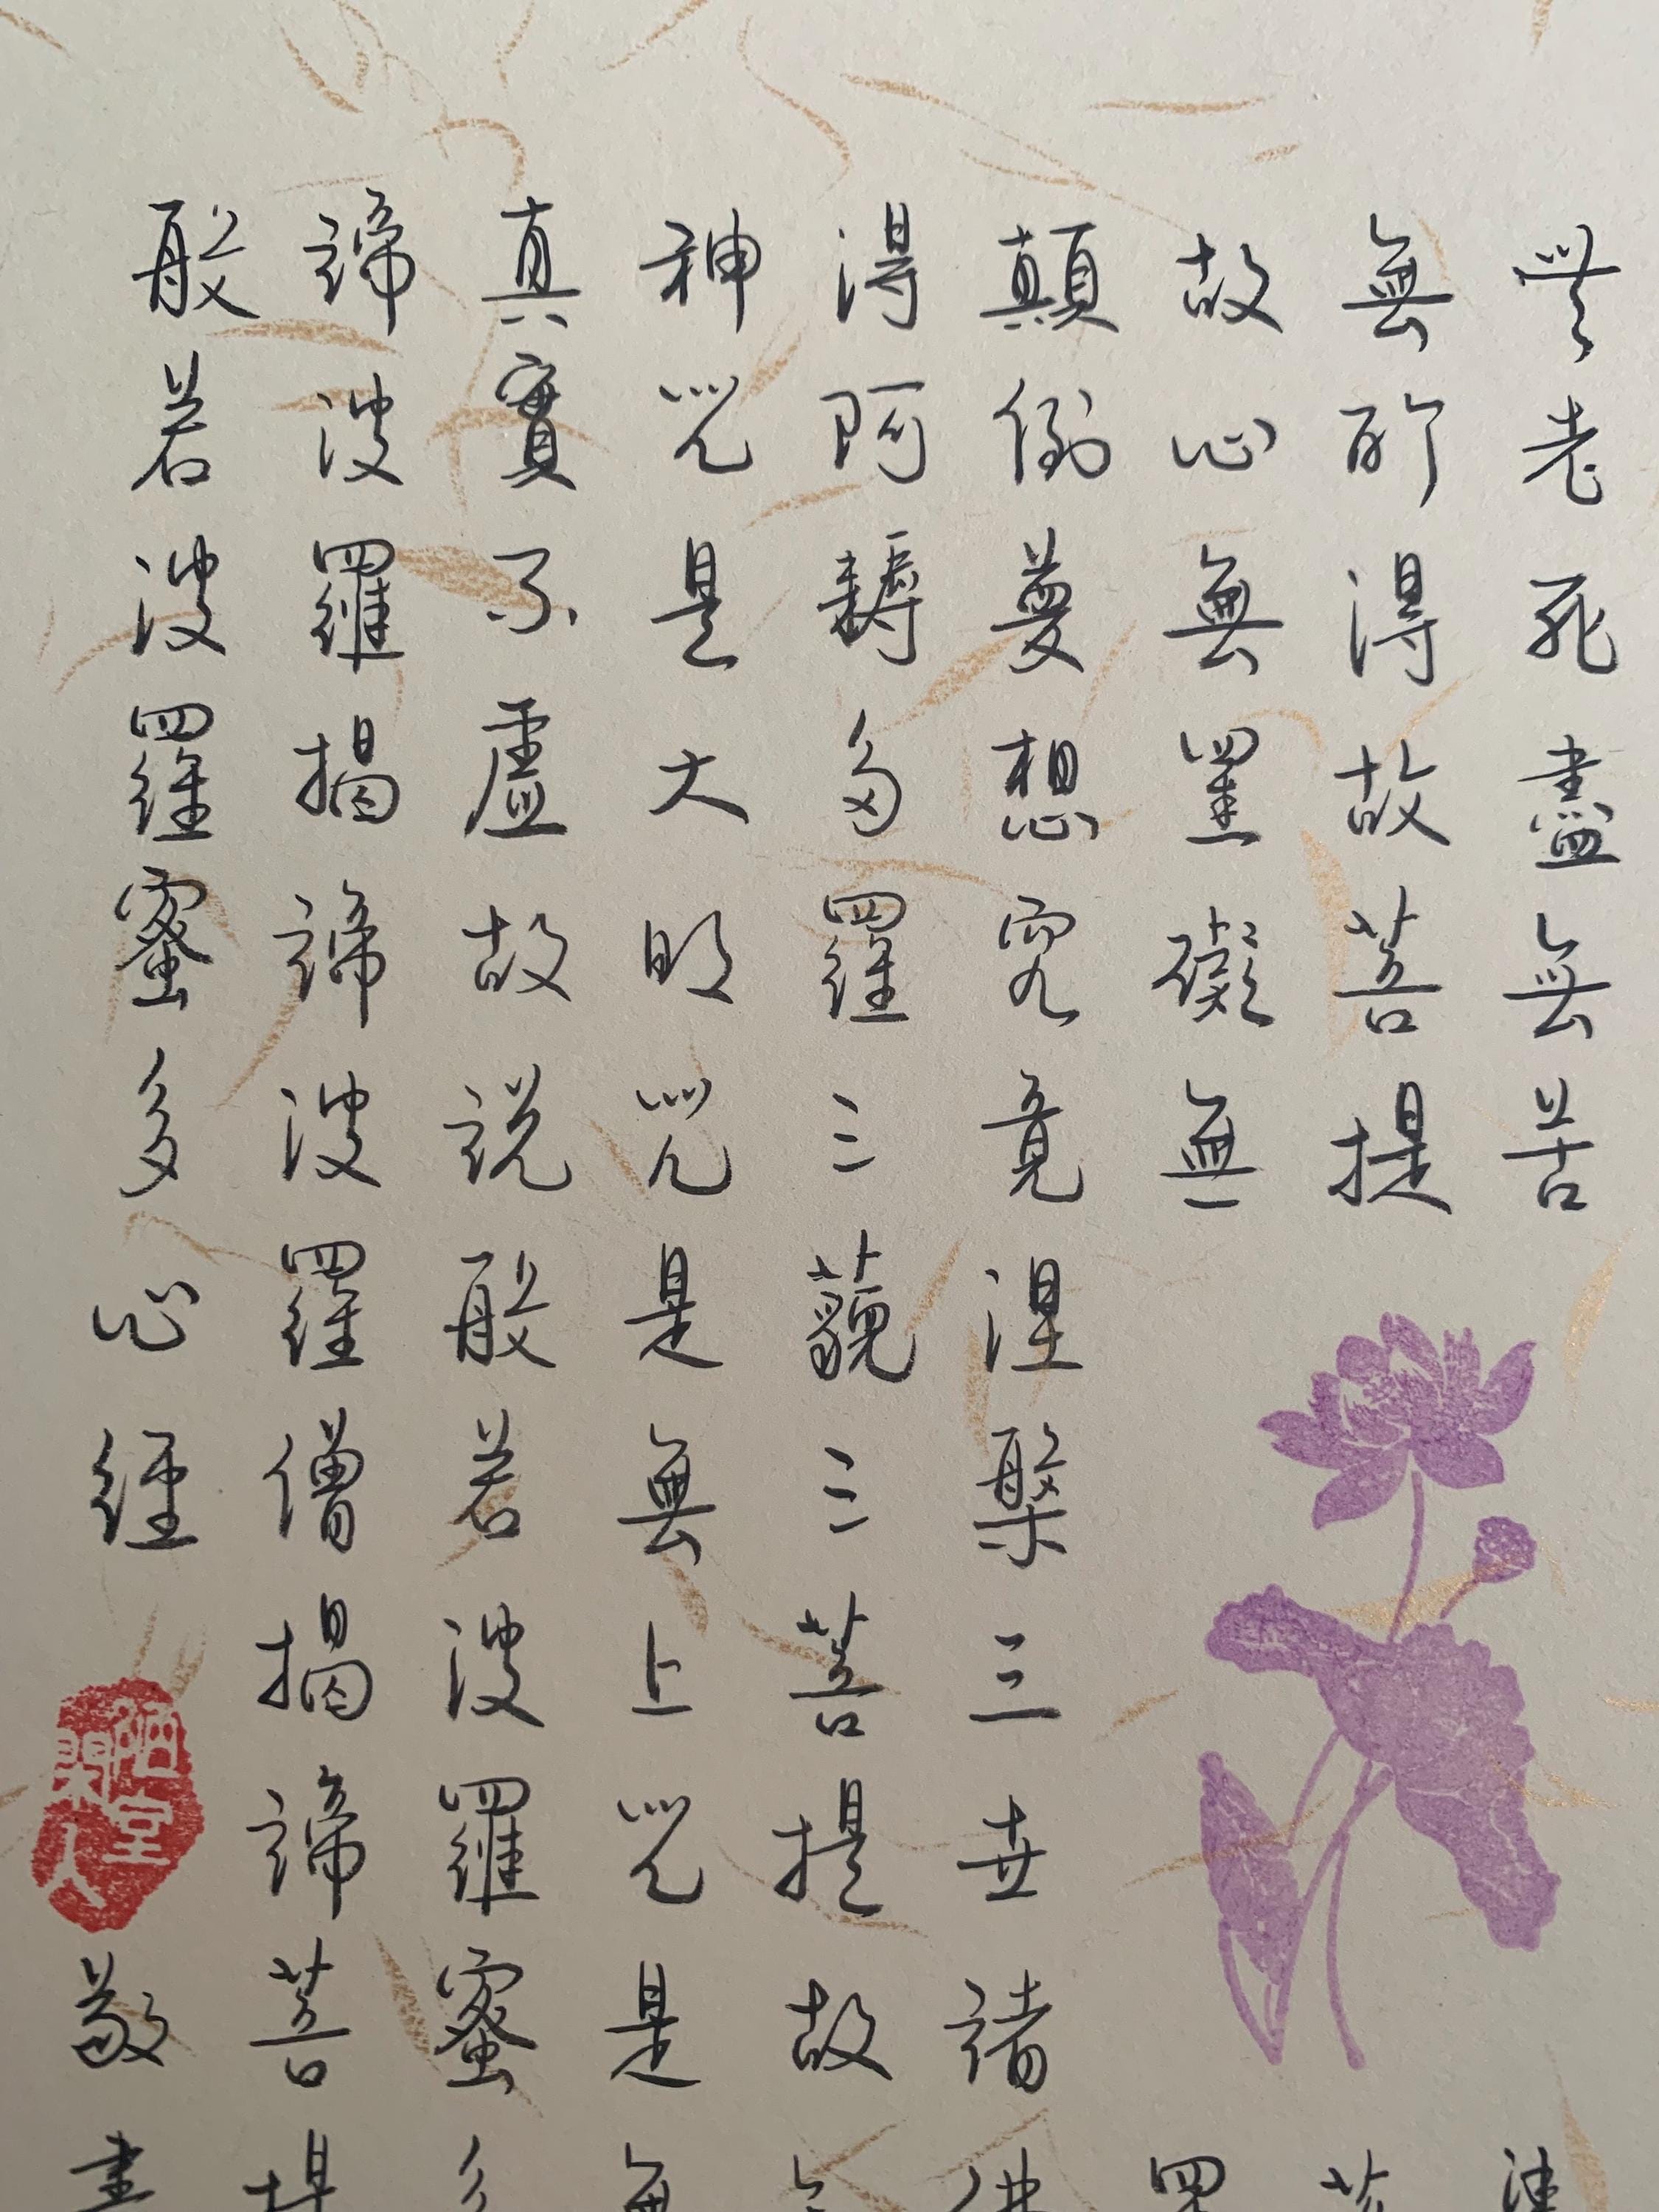 無老死盡無苦
無所得故菩提
故心無罣礙無罣
顛倒夢想究竟涅槃三世諸佛
得阿耨多羅三藐三菩提故
神咒是大明咒是無上咒是無
真實不虛故說般若波羅蜜多
諦波羅揭諦波羅僧揭諦菩提
般若波羅蜜多心經
陋室閑人
敬書